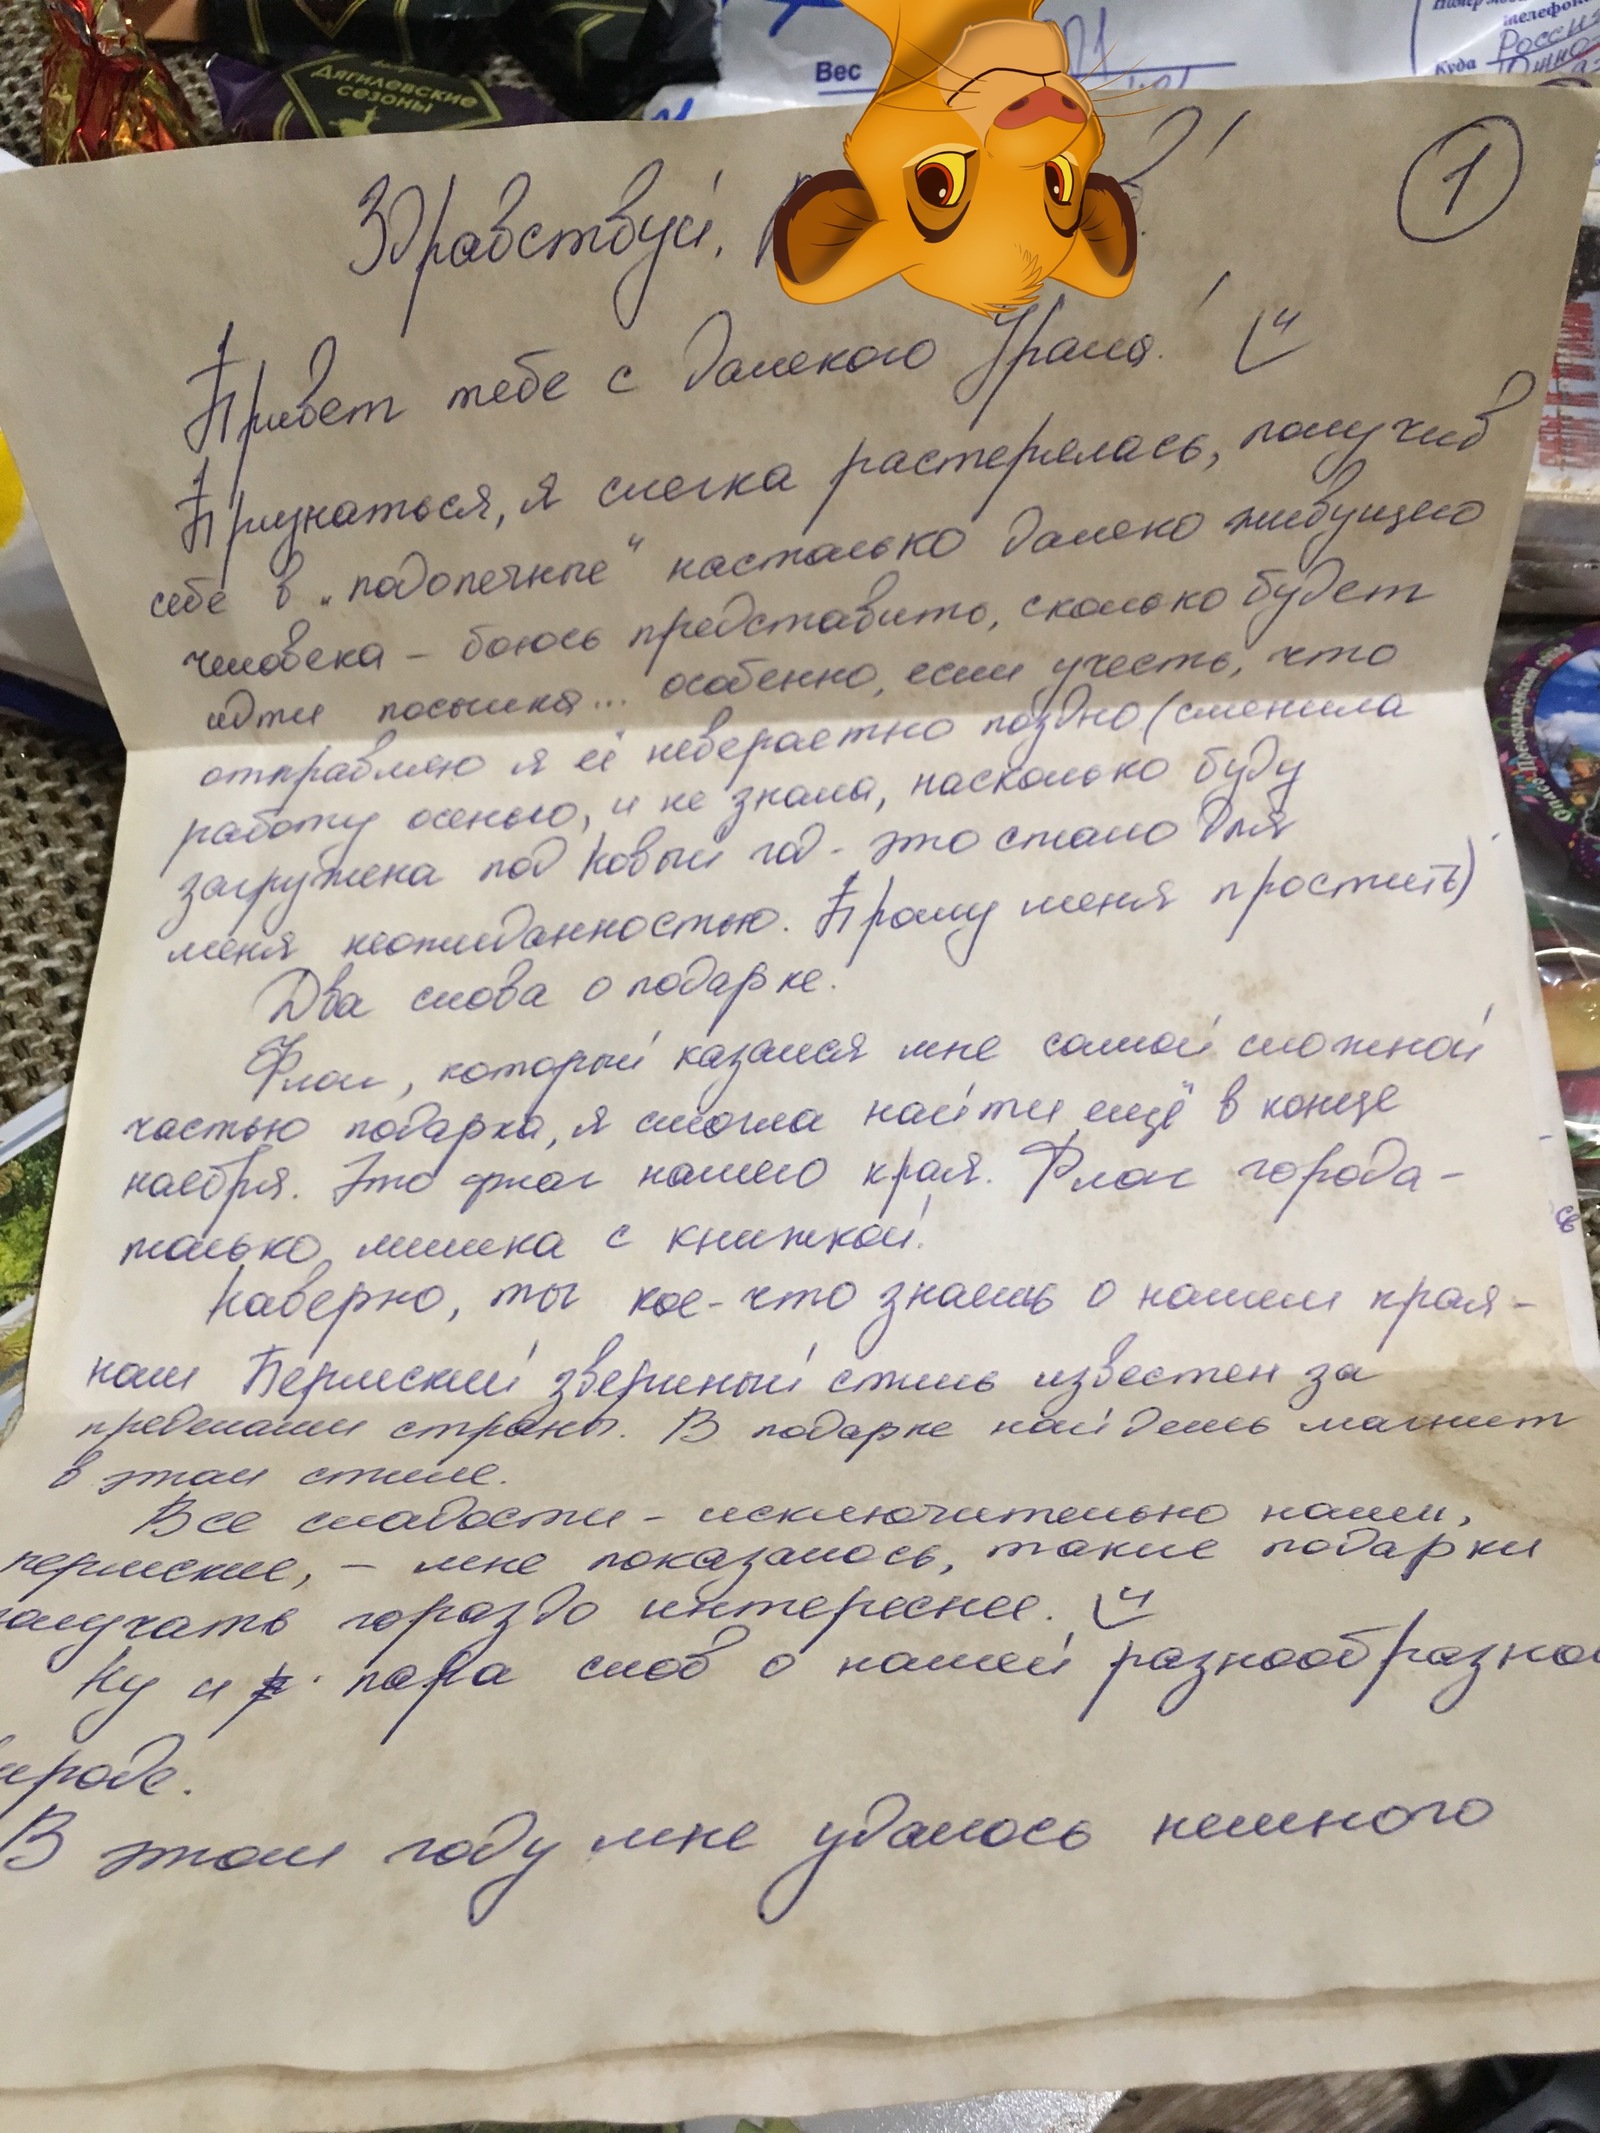 Вес
Куда Россия
Дягилевские
сезоны
1
Здравствуй,
Привет тебе с далекого Урала!
Признаться, я слегка растерялась, получив
себе в „подопечные“ настолько далеко живущего
человека – боюсь представить, сколько будет
идти посылка... особенно, если учесть, что
отправляю я её невероятно поздно (сменила
работу осенью, и не знала, насколько буду
загружена под Новый год - это стало для
меня неожиданностью. Прошу меня простить)
Два слова о подарке.
Флаг, который казался мне самой сложной
частью подарка, я смогла найти ещё в конце
ноября. Это флаг нашего края. Флаг города -
только мишка с книжкой.
Наверно, ты кое-что знаешь о нашем крае -
наш Пермский звериный стиль известен за
пределами страны. В подарке найдешь магнит
в этом стиле.
Все сладости - исключительно наши,
пермские, – мне показалось, такие подарки
получать гораздо интереснее.
Ну и пара слов о нашей разнообразной
природе.
В этом году мне удалось немного